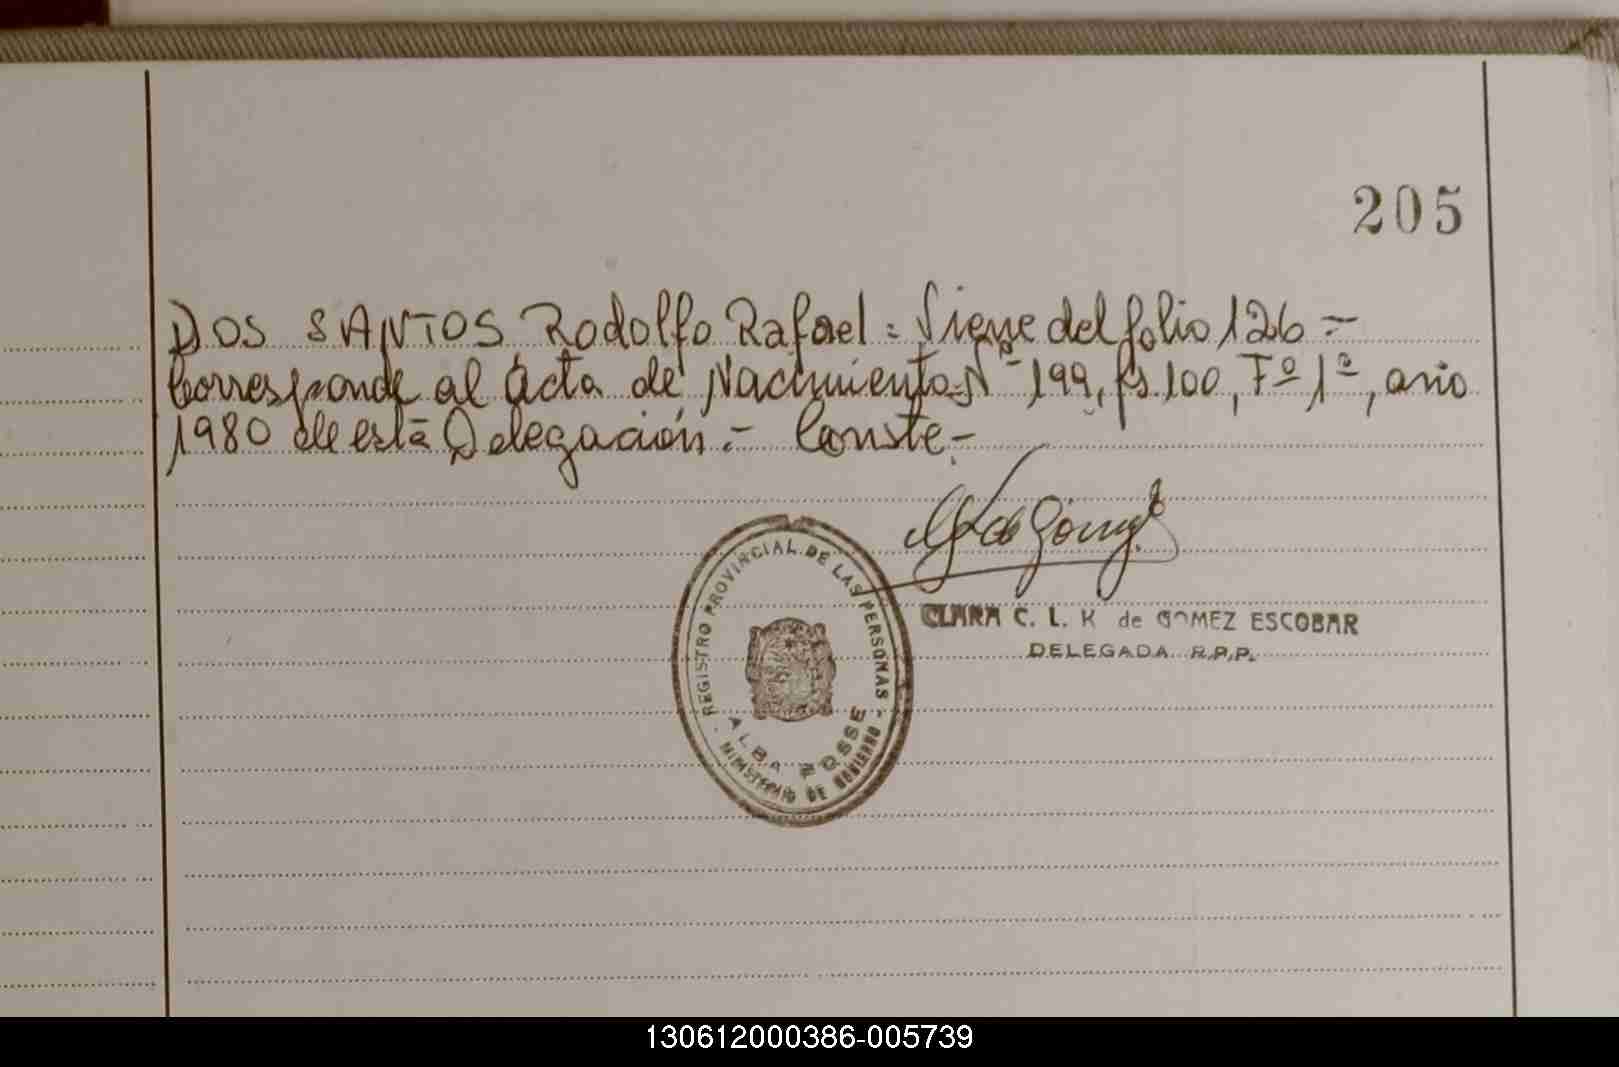 205
DOS SANTOS Rodolfo Rafael = Viene del folio 126 =
Corresponde al Acta de Nacimiento Nº 199, fs. 100, Tº 1º, año
1980 de esta Delegación.- Conste.-
CLARA C. L. K de GOMEZ ESCOBAR
DELEGADA R.P.P.
REGISTRO PROVINCIAL DE LAS PERSONAS
ALBA POSSE
- MINISTERIO DE GOBIERNO -
130612000386-005739